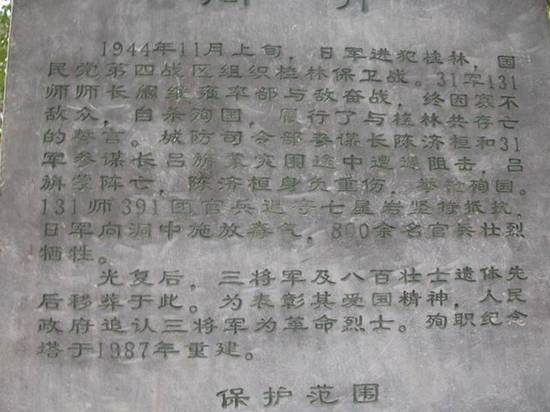 1944年11月上旬,日军进犯桂林,国
民党第四战区组织桂林保卫战。31军131
师师长阚维雍率部与敌奋战,终因寡不
敌众,自杀殉国,履行了与桂林共存亡
的誓言。城防司令部参谋长陈济桓和31
军参谋长吕旃蒙突围途中遭遇阻击,吕
旃蒙阵亡,陈济桓身负重伤,举枪殉国。
131师391团官兵退守七星岩坚持抵抗,
日军向洞中施放毒气,800余名官兵壮烈
牺牲。
光复后,三将军及八百壮士遗体先
后移葬于此。为表彰其爱国精神,人民
政府追认三将军为革命烈士。殉职纪念
塔于1987年重建。
保护范围